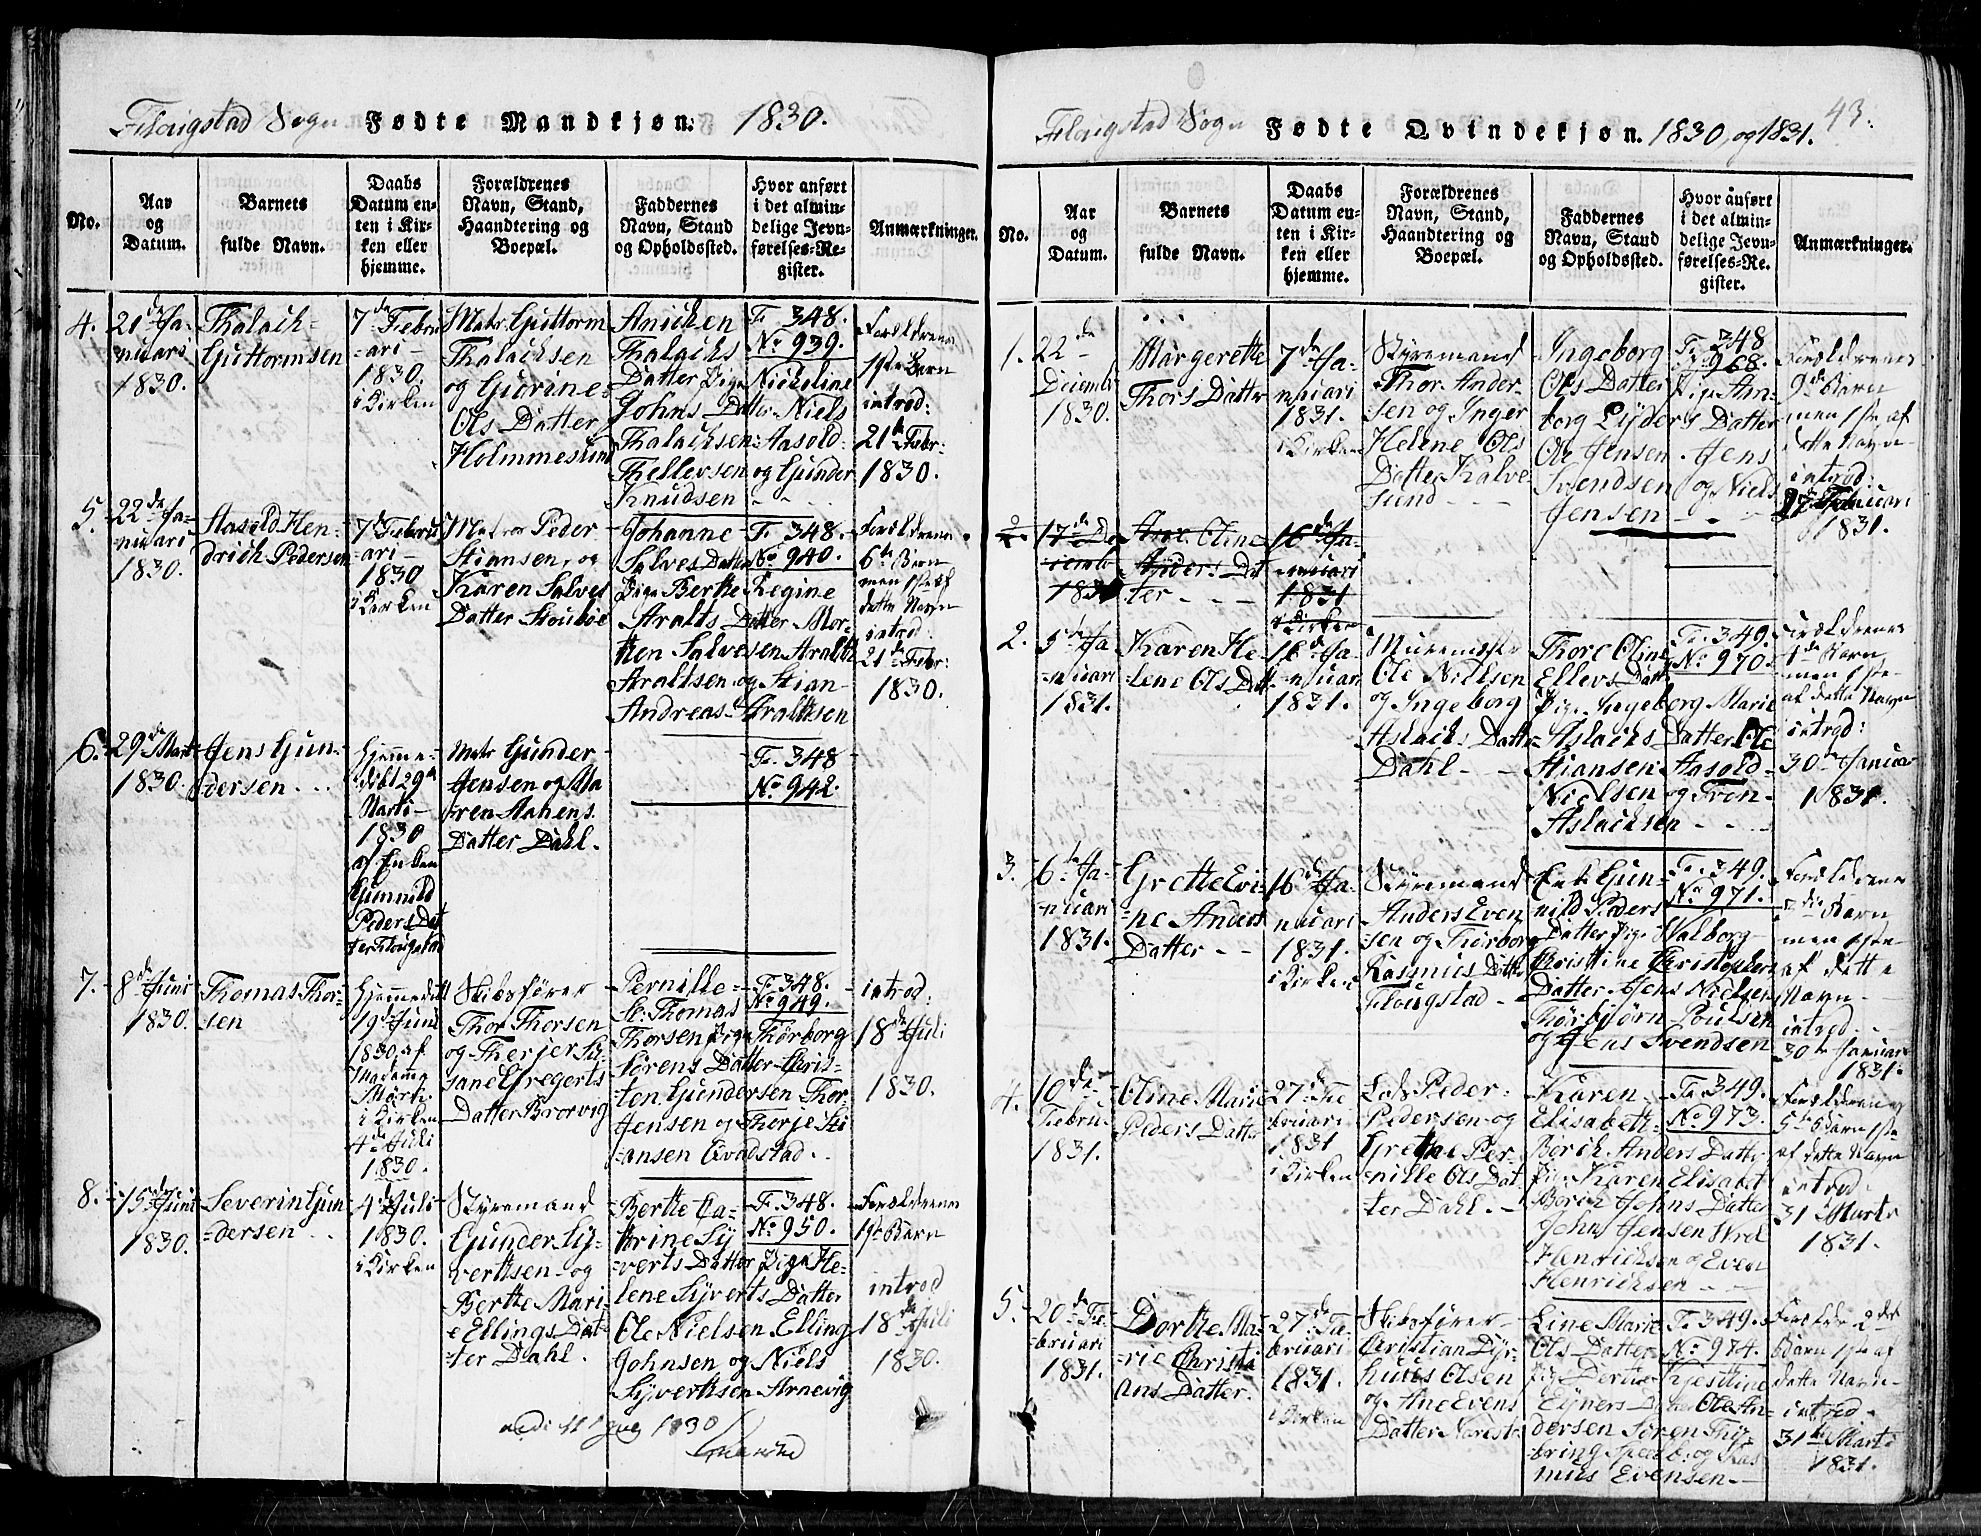 Flougstad Sogn Fødte Mandkjøn. 1830.
No.
Aar og Datum.
Barnets fulde Navn.
Daabs Datum enten i Kirken eller hjemme.
Forældrenes Navn, Stand, Haandtering og Boepæl.
Faddernes Navn, Stand og Opholdssted.
Hvor anført i det almindelige Jevnførelses-Register.
Anmærkninger.
4.
21de Ja-
nuari
1830.
Thalach
Guttormsen
7de Febru
-ari-
1830.
i Kirken
Matr. Guttorm
Thalachsen
og Gurine
Ols Datter
Holmmesund
Anichen
Thalachs
Datter Pige Nicholine
Johns Datter Niels
Thalachsen Aasold
Thellevsen og Gunder
Knudsen
F. 348.
No 939.
Forældrenes
1ste Barn
introd:
21de Febr.
1830.
5.
22de Ja-
nuari
1830.
Aasold Hen-
drich Pedersen
7de Febru
ari-
1830
i Kirken
Matros Peder
Stiansen, og
Karen Salves
Datter Stoubøe
Johanne
Salves Datter
Pige Berthe Regine
Aralts Datter Mor-
then Salvesen Aralth
Araltsen og Stian
Andreas Aralthsen
F. 348.
No 940.
Forældrenes
6te Barn
men 1ste af
dette Navn
introd:
21de Febr:
1830.
6.
29de Marti
1830.
Jens Gun-
dersen
Hjemme-
døbt 29de
Marti-
1830
af Enken
Gunnild
Peders Dat
ter Flougstad
Matr Gunder
Jensen og Ma
ren Aanens
Datter Dahl.
F. 348
No 942.
7.
8de Juni
1830.
Thomas Thor-
sen
Hjemmedøbt
19de Juni
1830, af
Madamme
Mørch.
i Kirken
4de Juli
1830.
Skibsfører
Thor Thorsen
og Therjer Su-
sane Gregerts
Datter Brorvig
Pernille
St. Thomas
Thorsen Pige Thørborg
Sørens Datter Chris-
ten Gundersen Thor-
Jensen og Thorje Sti
ansen Qvadstad.
F. 348.
No 949.
introd:
18de Juli
1830.
8.
15de Juni
1830.
Severin Gun
dersen
4de Juli
1830.
i Kirken
Styremand
Gunder Sy-
verthsen og
Berthe Mari-
e Ellings Dat-
ter Dahl.
Berthe Ca-
thrine Sy
verts Datter Pige He-
lene Syverts Datter
Ole Nielsen Elling
Johnsen og Niels
Syverthsen Arnevig
F. 348.
No 950.
Forældrenes
1ste Barn
introd
18de Juli
1830.
1830
Flougstad Sogn Fødte Qvindekjøn. 1830, og 1831. 43.
No.
Aar og Datum.
Barnets fulde Navn.
Daabs Datum enten i Kirken eller hjemme.
Forældrenes Navn, Stand, Haandtering og Boepæl.
Faddernes Navn, Stand og Opholdssted.
Hvor anført i det almindelige Jevnførelses-Register.
Anmærkninger.
1.
22de
Decembr
1830.
Margerette
Thors Datter
7de Ja-
nuari
1831.
i Kirken
Styremand
Thor Ander-
sen og Inger
Helene Ols
Datter Kalve-
sund
Ingeborg
Ols Datter Pige Am-
borg Lyders Datter
Ole Jensen Jens
Svendsen og Niels
Jensen
F. 348
No 968.
Forældrenes
9de Barn
men 1ste af
dette Navn
introd:
1831.
2.
17de De
cemb
183
Ane Oline
Anders Dat
ter
16de Ja-
nuari
1831
i Kirken
2.
5te Ja
nuari
1831.
Karen He-
lene Ols Datt
16de Ja-
nuari
1831.
Ole Nielsen
og Ingeborg
Aslachs Datter
Dahl
Thore Oline
Ellevs Datt
Pige Ingeborg Marie
Aslachs Datter Ole
Stiansen Aasold
Nielsen og Tron
Aslachsen
F. 349.
No 970.
Forældrenes
Barn
men 1ste
af dette Navn
introd:
30de Januar
1831.
3.
6te Ja-
nuari
1831.
Grethe Evi-
ne Anders
Datter
16de Ja-
nuari
1831.
i Kirken
Styremand
Anders Even
sen og Thørborg
Rasmus Datter
Flougstad
Enke Gun-
nild Peders
Datter Pige Walborg
Christine Christophers
Datter Jens Nielsen
Thørbjørn Poulsen
og Jens Svendsen
F. 349.
No 971.
Forældrenes
Barn
men 1ste
af dette
Navn
introd
30de Januari
1831.
4.
10de
Febru
1831.
Oline Marie
Peders Datter
27de Fe
bruari
1831
i Kirken
Lods Peder
Pedersen og
Grethe Per-
nille Ols Dat
ter Dahl.
Karen
Elisabeth
Borch Anders Datter
Pige Karen Elisabet
Borch Johns Datter
John Jensen Wrel
Henrichsen og Even
Henrichsen
F. 349.
No 973.
Forældrenes
5te Barn 1ste
af dette Navn
introd.
31 Marts
1831.
5.
20de Fe
bruari
1831.
Dorthe Ma-
rie Christi
ans Datter.
27de Fe
bruari
1831.
i Kirken
Skibsfører
Christian Dyr-
huus Olsen
og Ane Evens
Datter Narest
Line Marie
Ols Datter
Pige Dorthe Kjestine
Eyners Datter Ole An-
dersen Søren Thy-
bring Speelb. og Ras
mus Evensen
F. 349.
No 974.
Foreldr 2det
Barn 1ste af
dette Navn
introd
31te Marti
1831.